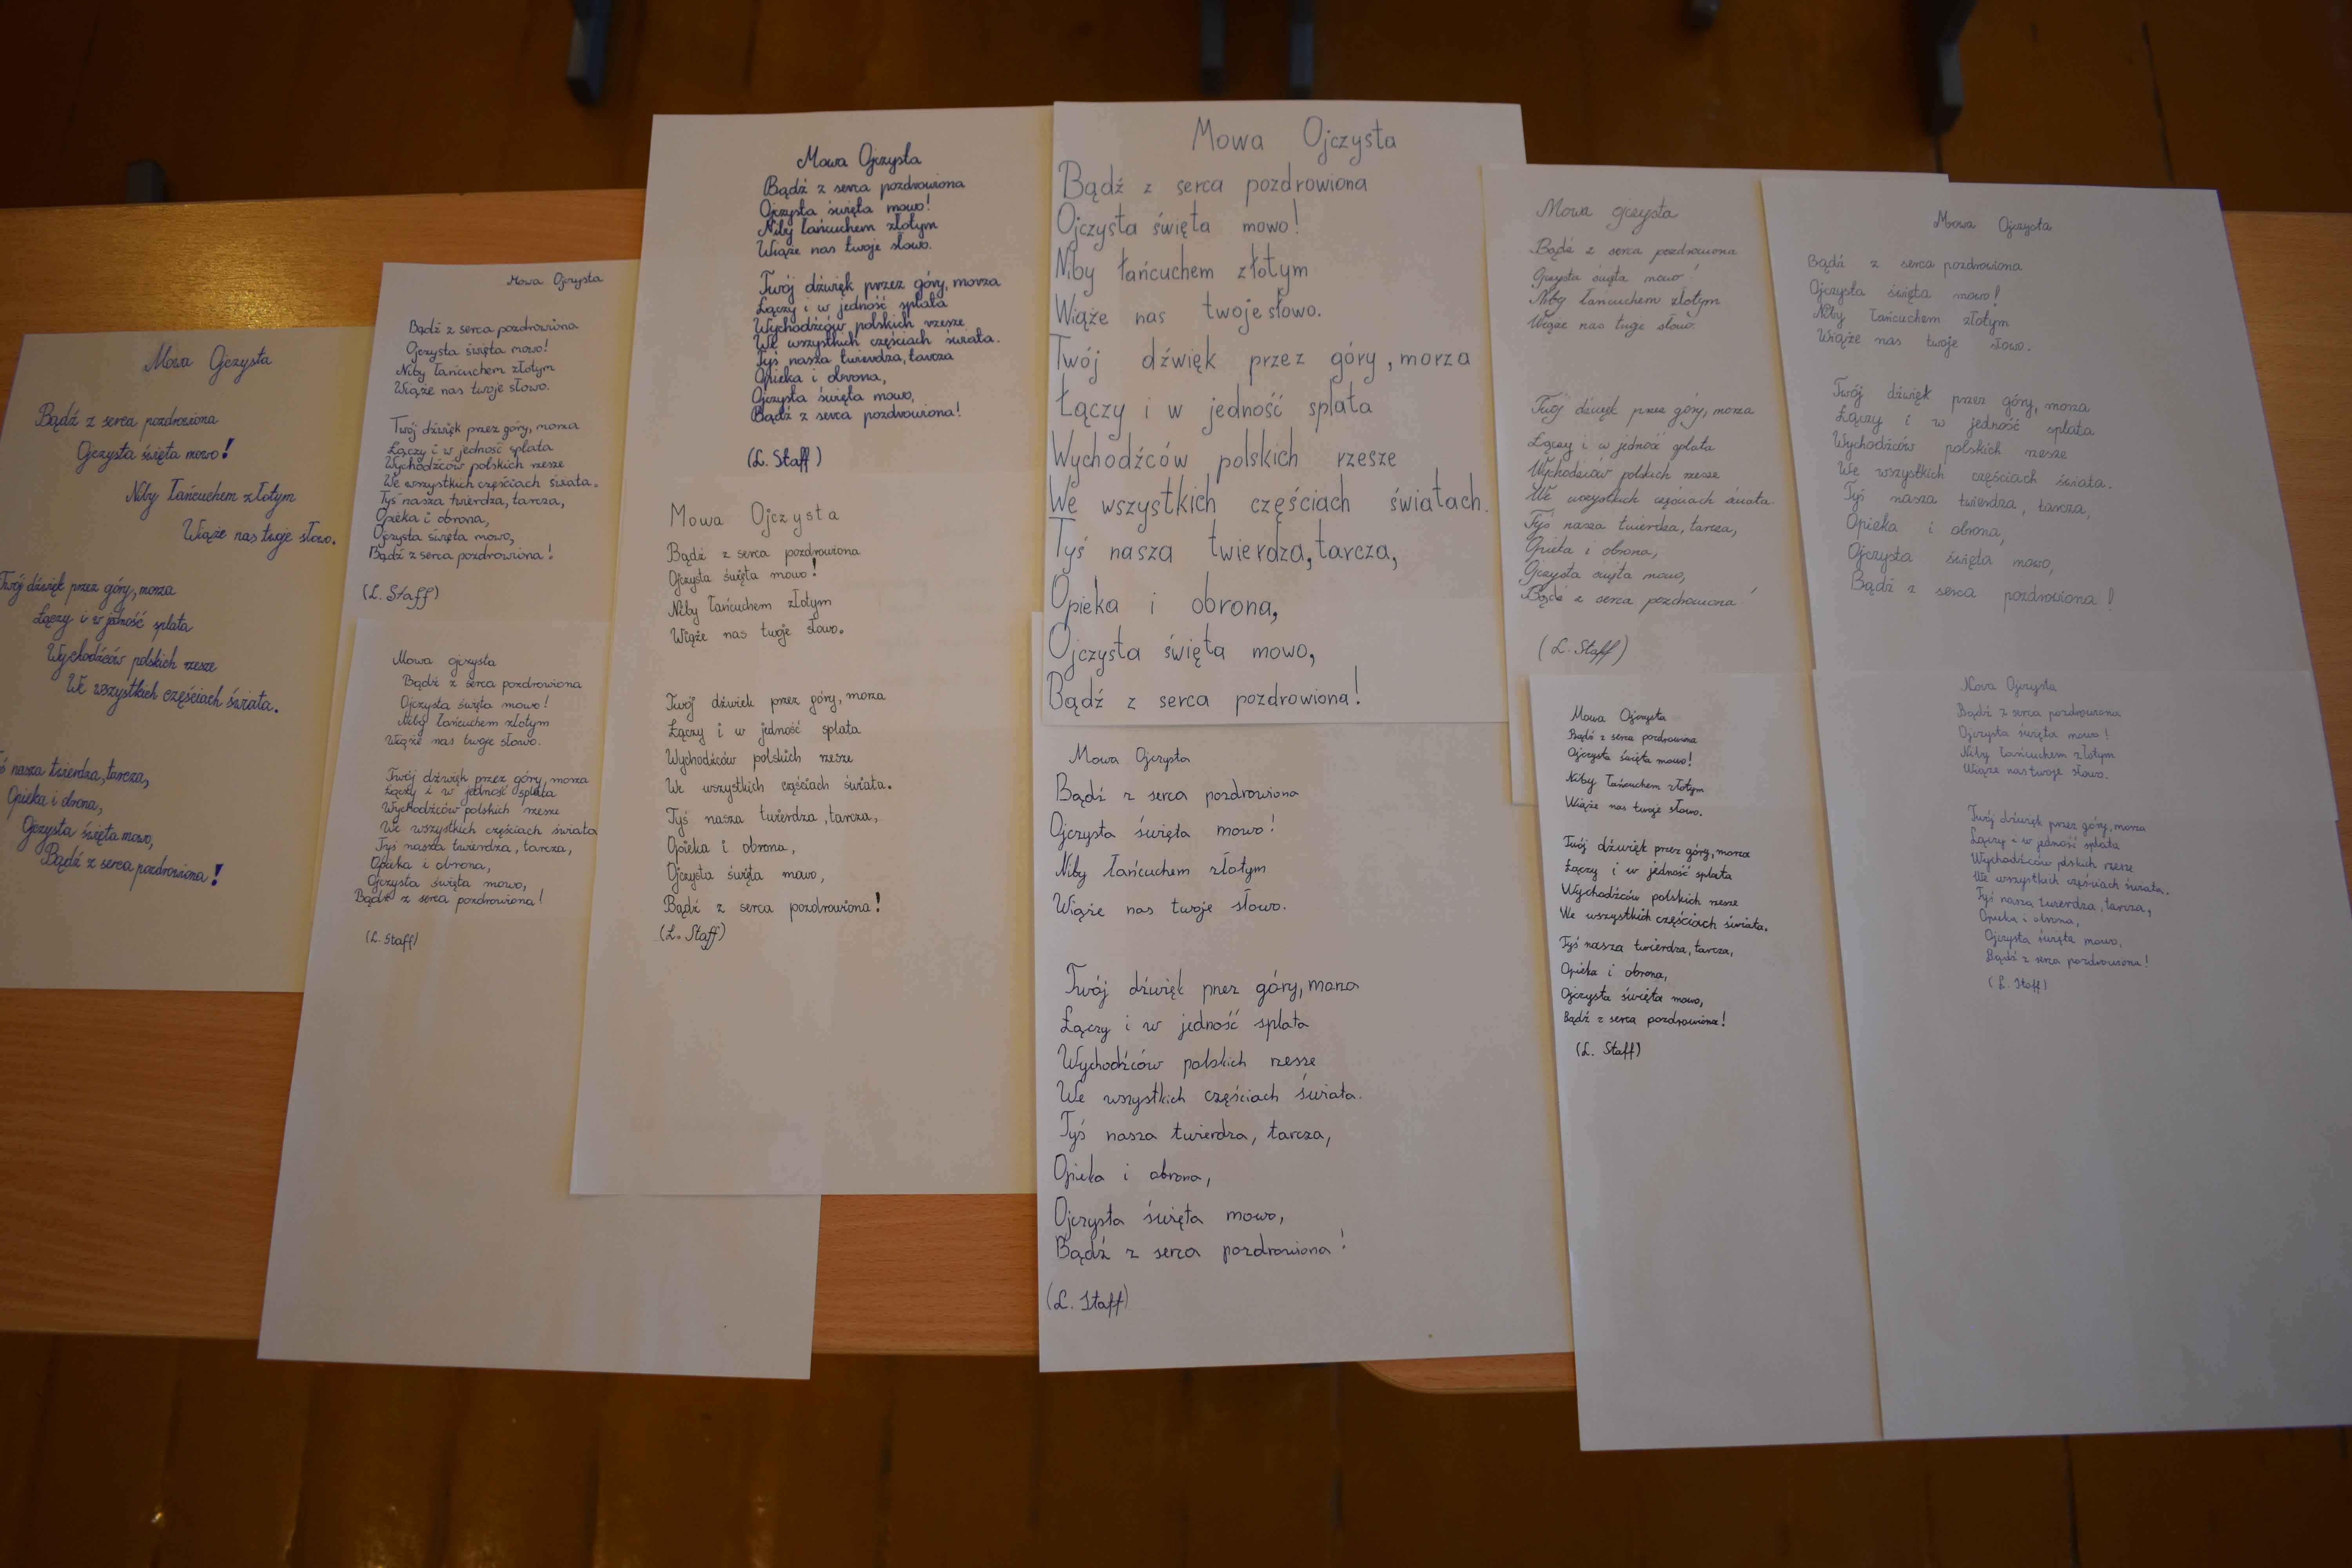 Mowa Ojczysta
Bądź z serca pozdrowiona
Ojczysta święta mowo!
Niby łańcuchem złotym
Wiąże nas twoje słowo.
Twój dźwięk przez góry, morza
Łączy i w jedność splata
Wychodźców polskich rzesze
We wszystkich częściach świata.
nasza twierdza, tarcza,
Opieka i obrona,
Ojczysta święta mowo,
Bądź z serca pozdrowiona!
Mowa Ojczysta
Bądź z serca pozdrowiona
Ojczysta święta mowo!
Niby łańcuchem złotym
Wiąże nas twoje słowo.
Twój dźwięk przez góry, morza
Łączy i w jedność splata
Wychodźców polskich rzesze
We wszystkich częściach świata.
Tyś nasza twierdza, tarcza,
Opieka i obrona,
Ojczysta święta mowo,
Bądź z serca pozdrowiona!
(L. Staff)
Mowa ojczysta
Bądź z serca pozdrowiona
Ojczysta święta mowo!
Niby łańcuchem złotym
Wiąże nas twoje słowo.
Twój dźwięk przez góry, morza
Łączy i w jedność splata
Wychodźców polskich rzesze
We wszystkich częściach świata
Tyś nasza twierdza, tarcza,
Opieka i obrona,
Ojczysta święta mowo,
Bądź z serca pozdrowiona!
(L. Staff)
Mowa Ojczysta
Bądź z serca pozdrowiona
Ojczysta święta mowo!
Niby łańcuchem złotym
Wiąże nas twoje słowo.
Twój dźwięk przez góry, morza
Łączy i w jedność splata
Wychodźców polskich rzesze
We wszystkich częściach świata.
Tyś nasza twierdza, tarcza
Opieka i obrona,
Ojczysta święta mowo,
Bądź z serca pozdrowiona!
(L. Staff)
Mowa Ojczysta
Bądź z serca pozdrowiona
Ojczysta święta mowo!
Niby łańcuchem złotym
Wiąże nas twoje słowo.
Twój dźwiek przez góry, morza
Łączy i w jedność splata
Wychodźców polskich rzesze
We wszystkich częściach świata.
Tyś nasza twierdza, tarcza,
Opieka i obrona,
Ojczysta święta mowo,
Bądź z serca pozdrowiona!
(L. Staff)
Mowa Ojczysta
Bądź z serca pozdrowiona
Ojczysta święta mowo!
Niby łańcuchem złotym
Wiąże nas twoje słowo.
Twój dźwięk przez góry, morza
Łączy i w jedność splata
Wychodźców polskich rzesze
We wszystkich częściach światach.
Tyś nasza twierdza, tarcza,
Opieka i obrona,
Ojczysta święta mowo,
Bądź z serca pozdrowiona!
Mowa Ojczysta
Bądź z serca pozdrowiona
Ojczysta święta mowo!
Niby łańcuchem złotym
Wiąże nas twoje słowo.
Twój dźwięk przez góry, morza
Łączy i w jedność splata
Wychodźców polskich rzesze
We wszystkich częściach świata.
Tyś nasza twierdza, tarcza,
Opieka i obrona,
Ojczysta święta mowo,
Bądź z serca pozdrowiona!
(L. Staff)
Mowa ojczysta
Bądź z serca pozdrowiona
Ojczysta święta mowo!
Niby łańcuchem złotym
Wiąże nas twoje słowo.
Twój dźwięk przez góry, morza
Łączy i w jedność splata
Wychodźców polskich rzesze
We wszystkich częściach świata
Tyś nasza twierdza, tarcza,
Opieka i obrona,
Ojczysta święta mowo,
Bądź z serca pozdrowiona!
(L. Staff)
Mowa Ojczysta
Bądź z serca pozdrowiona
Ojczysta święta mowo!
Niby łańcuchem złotym
Wiąże nas twoje słowo.
Twój dźwięk przez góry, morza
Łączy i w jedność splata
Wychodźców polskich rzesze
We wszystkich częściach świata.
Tyś nasza twierdza, tarcza,
Opieka i obrona,
Ojczysta święta mowo,
Bądź z serca pozdrowiona!
(L. Staff)
Mowa Ojczysta
Bądź z serca pozdrowiona
Ojczysta święta mowo!
Niby łańcuchem złotym
Wiąże nas twoje słowo.
Twój dźwięk przez góry, morza
Łączy i w jedność splata
Wychodźców polskich rzesze
We wszystkich częściach świata.
Tyś nasza twierdza, tarcza,
Opieka i obrona,
Ojczysta święta mowo,
Bądź z serca pozdrowiona!
Mowa Ojczysta
Bądź z serca pozdrowiona
Ojczysta święta mowo!
Niby łańcuchem złotym
Wiąże nas twoje słowo.
Twój dźwięk przez góry, morza
Łączy i w jedność splata
Wychodźców polskich rzesze
We wszystkich częściach świata.
Tyś nasza twierdza, tarcza,
Opieka i obrona,
Ojczysta święta mowo,
Bądź z serca pozdrowiona!
(L. Staff)